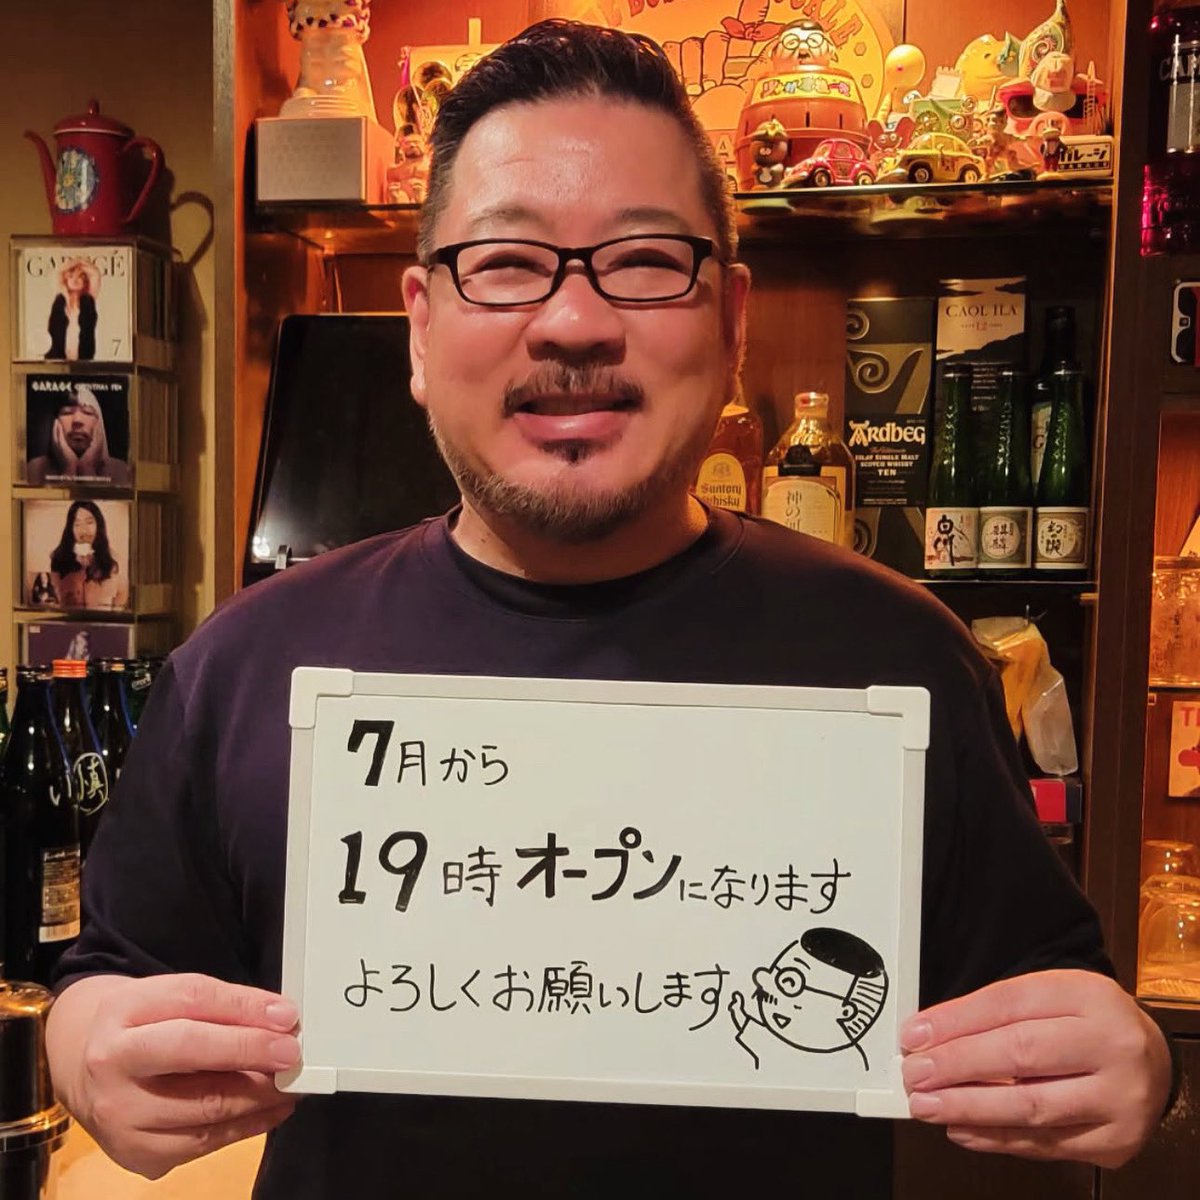 7月から
19時オープンになります
よろしくお願いします
GARAGE
7
GARAGE CHRISTMAS TEN
ガレージ
GARAGE
CAOL ILA
12
ARDBEG
ISLAY SINGLE MALT
SCOTCH WHISKY
TEN
Suntory
Whisky
神の河